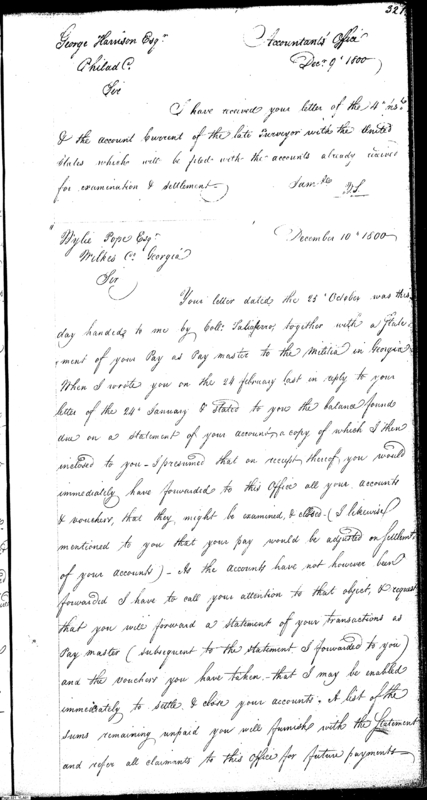 327
George Harrison Esqr. Accountants Office
Philad Ca. Decr. 9th 1800
Sir
I have received your letter of the 4th inst.
& the account Current of the late Surveyor with the United
States which will be filed with the accounts already received
for examination & settlement.
I am &c WS
Wylie Pope Esqr. December 10th 1800
Wilkes Co. Georgia
Sir
Your letter dated the 25th October was this
day handed to me by Colo. Taliaferro, together with a State
-ment of your Pay as Pay master to the Militia in Georgia
When I wrote you on the 24 february last in reply to your
letter of the 24th January I stated to you the balance found
due on a statement of your account, a copy of which I then
inclosed to you - I presumed that on receipt thereof you would
immediately have forwarded to this Office all your accounts
& vouchers, that they might be examined, & closed - (I likewise
mentioned to you that your pay would be adjusted on Settlemt.
of your accounts) - As the accounts have not however been
forwarded I have to call your attention to that object, & request
that you will forward a statement of your transactions as
Pay master (subsequent to the statement I forwarded to you)
and the vouchers you have taken - that I may be enabled
immediately to settle & close your accounts. A list of the
sums remaining unpaid you will furnish with the Statement
and refer all claimants to this Office for future payments